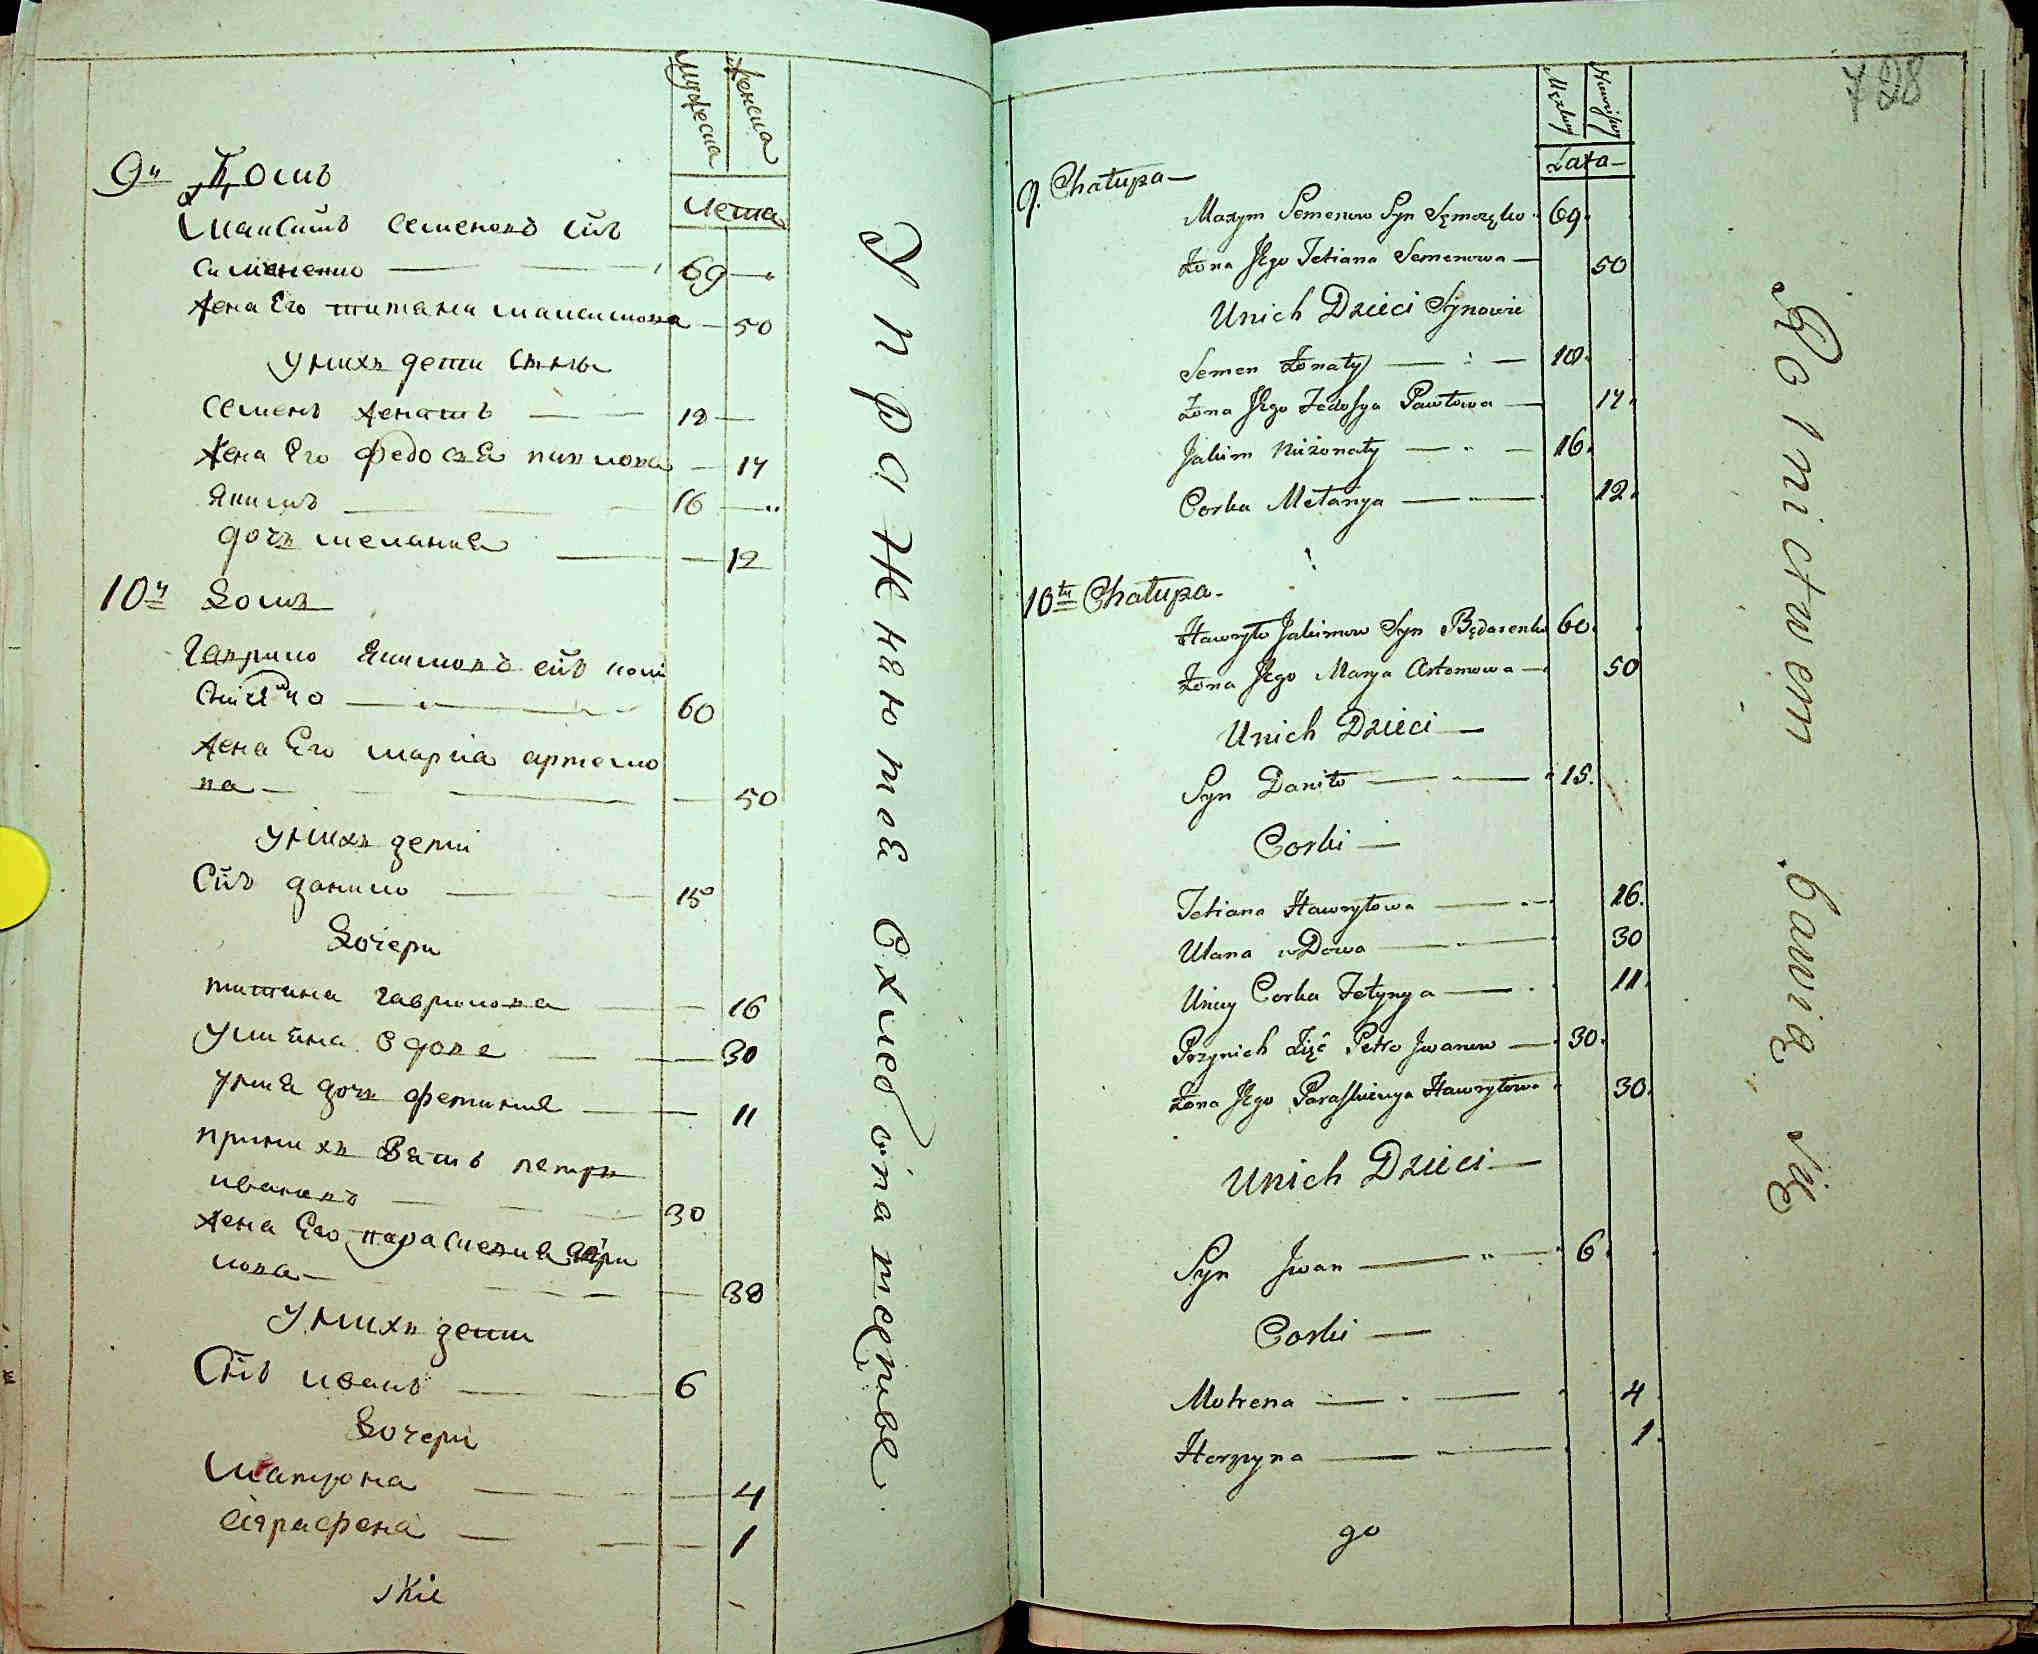 мужеска
женска
лета
9й Домъ
Максимъ Семеновъ сiнъ
Симоненко 69
жена Его титяна максимова 50
у нихъ дети Сины
Семенъ женатъ 18
жена Его Федосiя павлова 17
Якимъ 16
дочь мелания 12
10й Домъ
Гаврило Якимовъ сiнъ
60
жена Его мария артемо
ва 50
у нихъ дети
Сiнъ данило 15
Дочери
титяна гаврилова 16
Уляна вдова 30
у ния дочь фетиния 11
при нихъ Зять петръ
ивановъ 30
жена Его парасковия Гаври
лова 30
у нихъ дети
Сiнъ иванъ 6
Дочери
Матрона 4
Аграфена 1
skie
Упражнюються Ехлебопашествѣ
728
Męzkiey
Lata
9. Chałupa
Maxym Semenow Syn 69
Żona Jego Tetiana Semenowa 50
Unich Dzieci Synowie
Semen Żonaty 18
Żona Jego Fedosya Pawłowa 17
Jakim Niżonaty 16
Corka Mełanya 12
10ta Chałupa
Hawryło Jakimow Syn Będarenko 60
Żona Jego Marya Artemowa 50
Unich Dzieci
Syn Daniło 15
Corki
Tetiana Hawryłowa 16
Ulana wDowa 30
Uniey Corka Fetynya 11
Przynich Zięć Petro Jwanow 30
Żona Jego Paraskiewya Hawryłowa 30
Unich Dzieci
Syn Jwan 6
Corki
Motrena 4
Horpyna 1
go
Rolnictwem bawią się